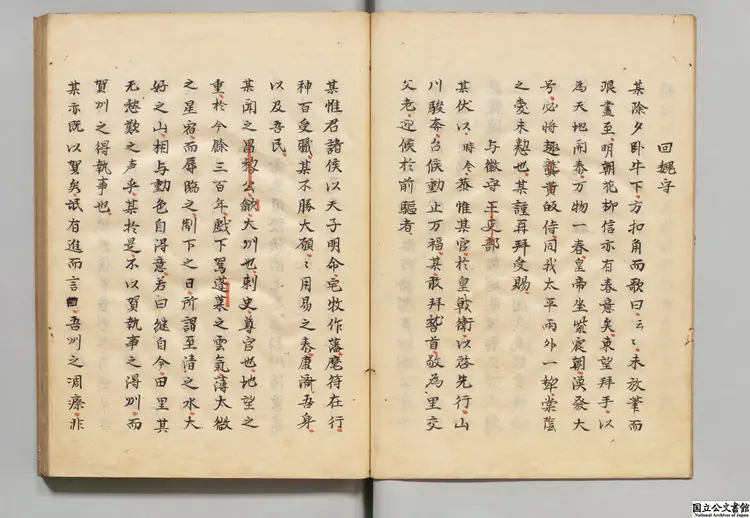 回魏守
某除夕卧牛下方扣角而歌曰云々未放筆而
琅畫至明朝花柳信亦有春意矣東望拜手以
為天地開泰万物一春皇帝坐紫宸朝漢發大
号必将趣龔黄的侍同我太平雨外一犂棠陰
之愛未愁也某謹再拜受賜
与徽守王吏部
某伏以時令恭惟某官於皇戟衛以啓先行山
川駿奔台候動止万福某敢拜稽首敬為里交
父老迎候於前驅者
某惟君諸侯以天子明命宅牧作藩麾符在行
神百受職其不勝大願々用易之泰賡濟吾身
以及吾民
某聞之昌黎公歙大州也刺史尊官也地望之
重於今餘三百年戲下駕蓬萊之雲氣薄太微
之星宿而辱臨之制下之日所謂至清之水大
好之山相与動色自得意若曰繼自今田里其
无愁歎之声乎某於是不以賀執事之得州而
賀州之得執事也
某亦既以賀矣或有進而言曰吾州之凋瘵非
国立公文書館
National Archives of Japan